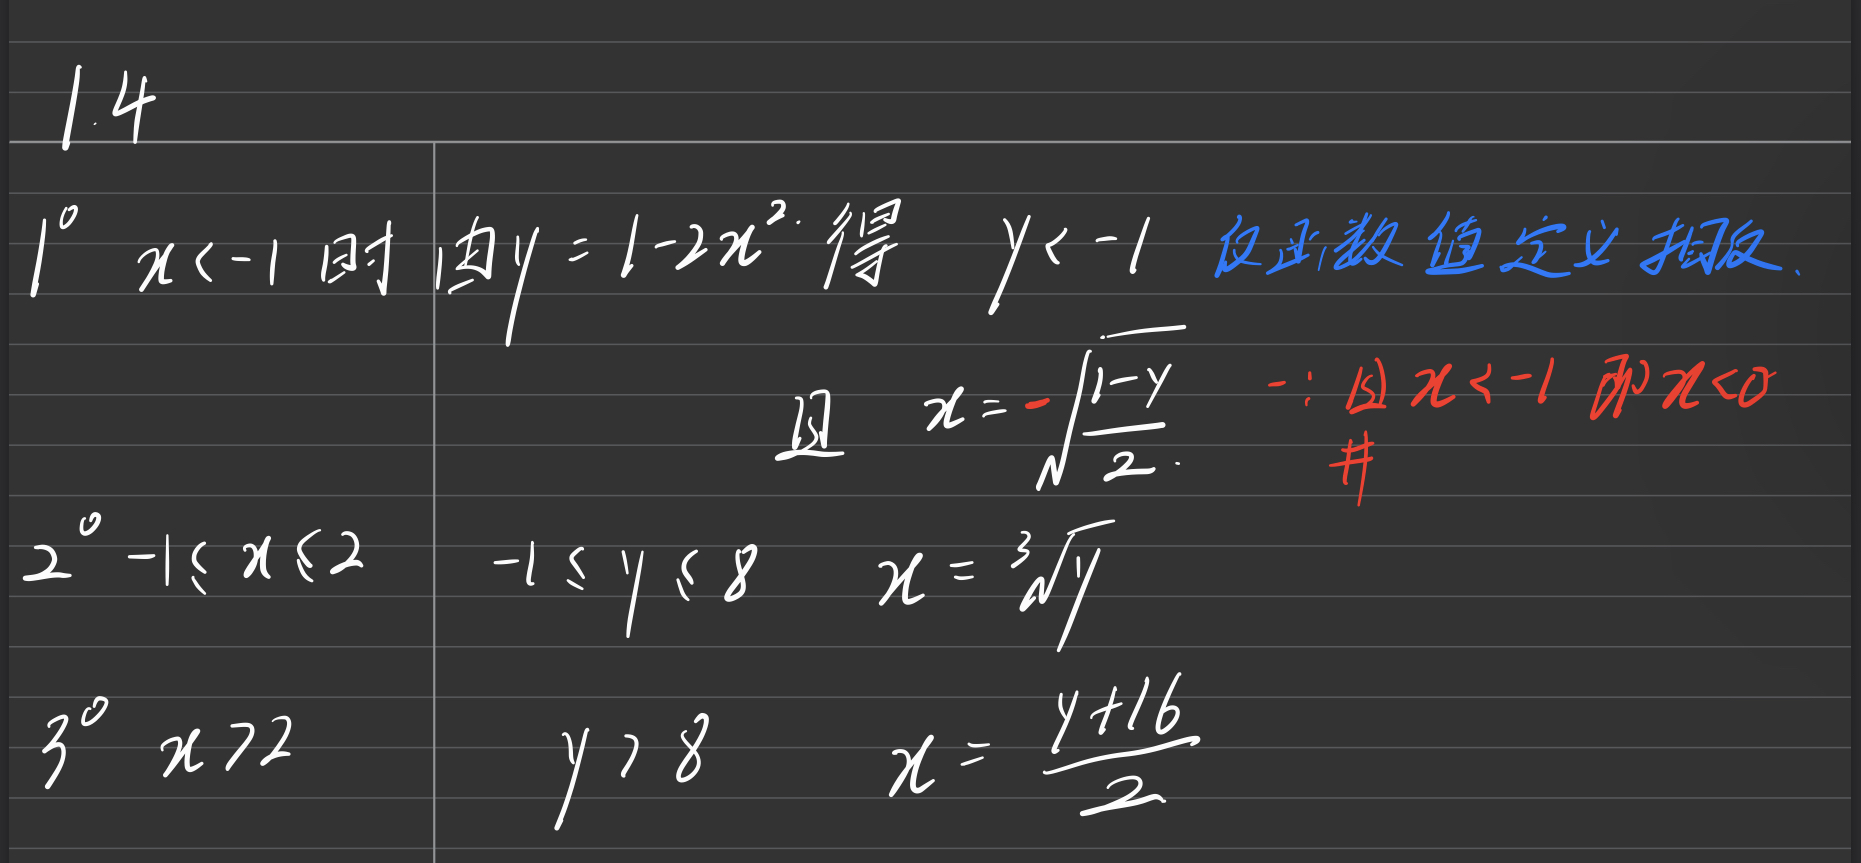 1.4
1° x<-1 时 由y=1-2x². 得 y<-1 反函数值定义相反.
且 x=-√((1-y)/2). -: 因x<-1 即x<0
#
2° -1≤x≤2 -1≤y≤8 x=³√y
3° x>2 y>8 x=(y+16)/2